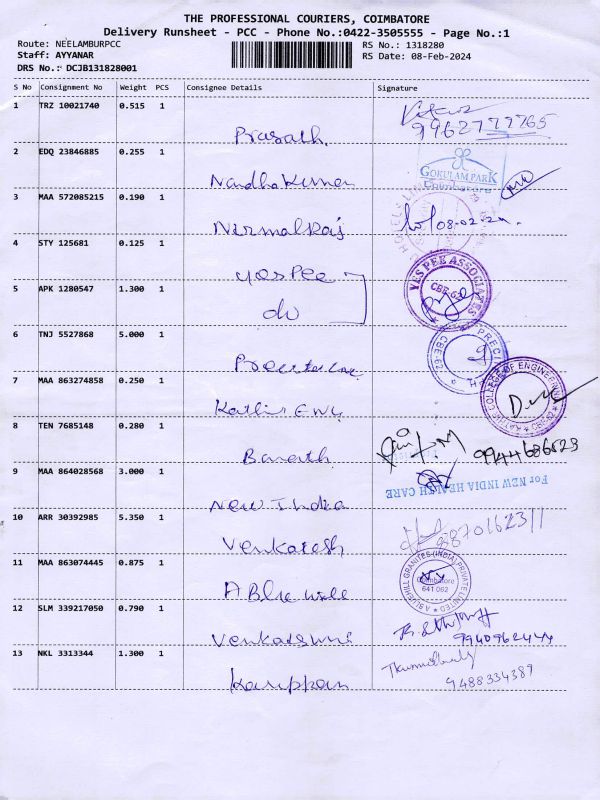 THE PROFESSIONAL COURIERS, COIMBATORE
Delivery Runsheet - PCC - Phone No.:0422-3505555 - Page No.:1
Route: NEELAMBURPCC
RS No.: 1318280
Staff: AYYANAR
RS Date: 08-Feb-2024
DRS No.: DCJB131828001
S No Consignment No Weight PCS Consignee Details Signature
1 TRZ 10021740 0.515 1
Prasath.
9962777765
2 EDQ 23846885 0.255 1
Nandha Kumar
GOKULAM PARK
Coimbatore
3 MAA 572085215 0.190 1
Nirmal Raj
08-02-24.
4 STY 125681 0.125 1
Yes Pee
YES PEE ASSOCIATES
CBE-62
5 APK 1280547 1.300 1
do
6 TNJ 5527868 5.000 1
CBE-62
7 MAA 863274858 0.250 1
Kathir Eng
COLLEGE OF ENGINEERING
8 TEN 7685148 0.280 1
Barath
9944686523
9 MAA 864028568 3.000 1
New India
For NEW INDIA HEALTH CARE
10 ARR 30392985 5.350 1
Venkatesh
9870162311
11 MAA 863074445 0.875 1
A Blue Hill
A BLUEHILL GRANITES (INDIA) PRIVATE LIMITED
Coimbatore
641 062
12 SLM 339217050 0.790 1
9940962444
13 NKL 3313344 1.300 1
Karuppan
9488334389